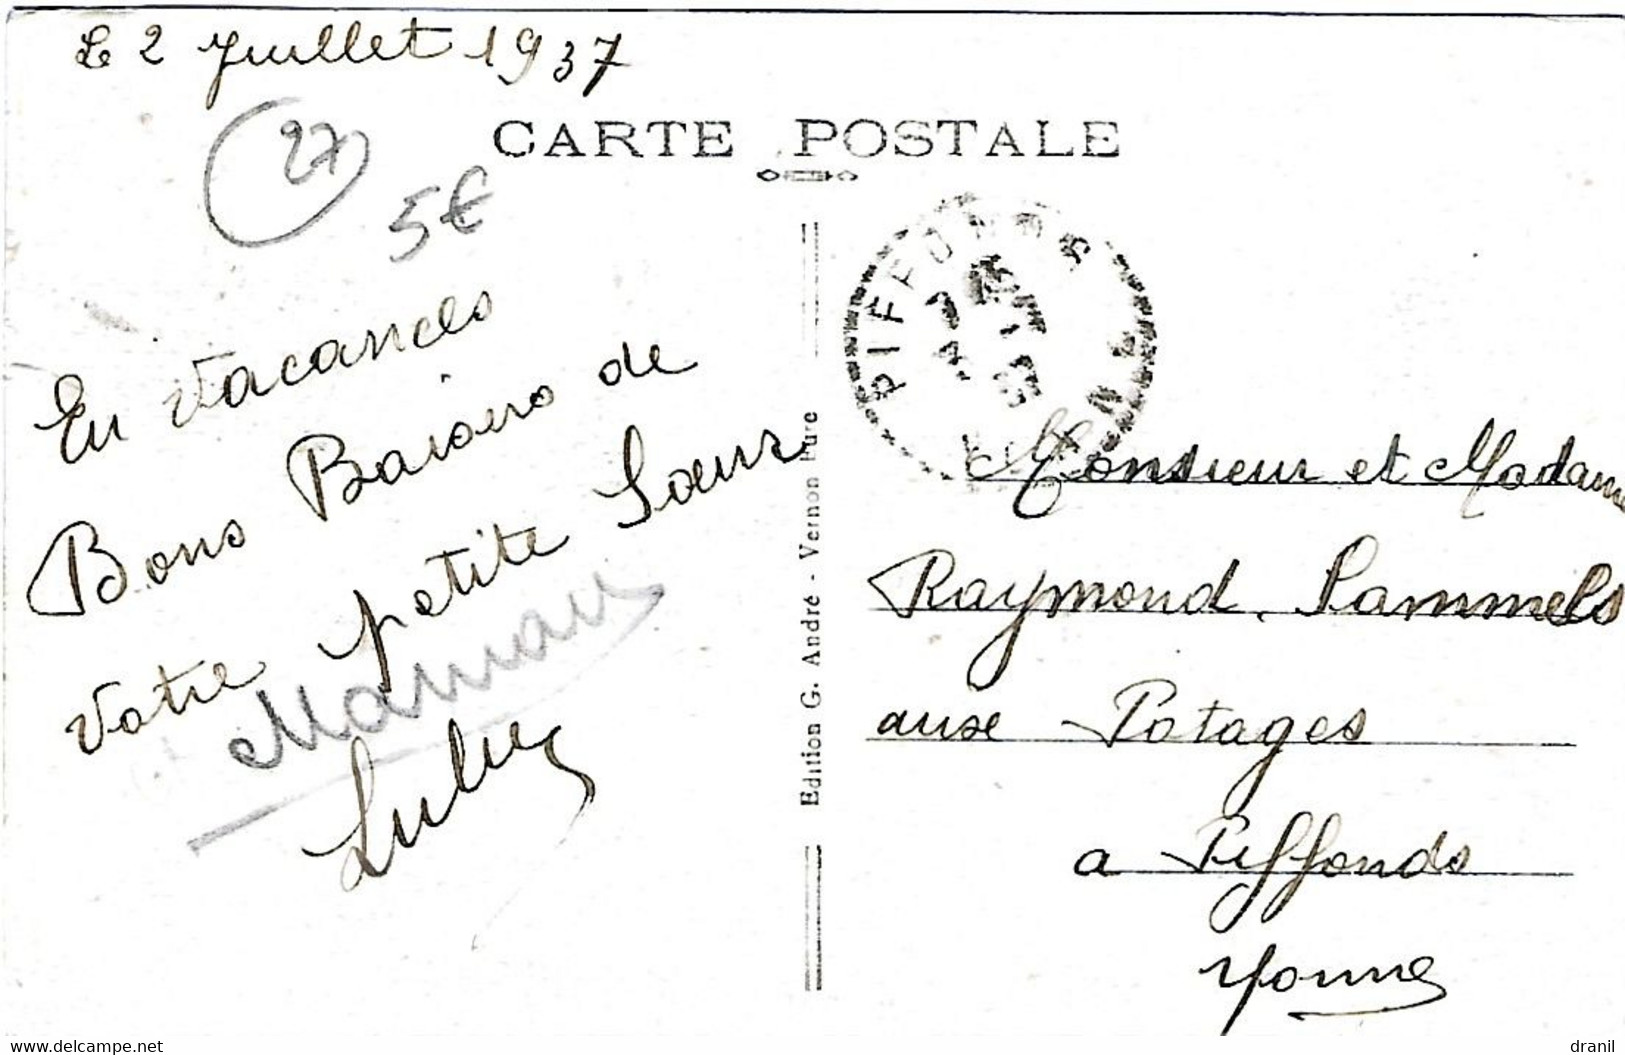 Le 2 Juillet 1937
CARTE POSTALE
27
5€
En Vacances
Bons Baisers de
votre petite Soeur
Maman
PIFFONDS
Edition G. André - Vernon Eure
Monsieur et Madame
Raymond Sammels
aux Potages
a Piffonds
Yonne
www.delcampe.net
dranil